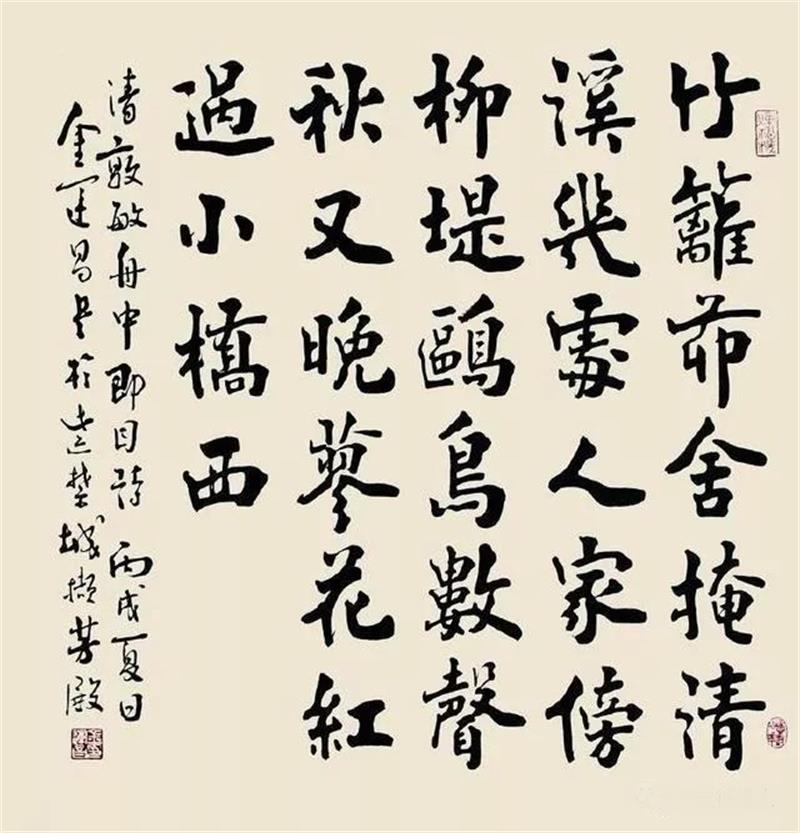 竹籬茆舍掩清
溪幾處人家傍
柳堤鷗鳥數聲
秋又晚蓼花紅
過小橋西
清敦敏舟中即目詩 丙戌夏日
金運昌書於遠埜城擷芳殿